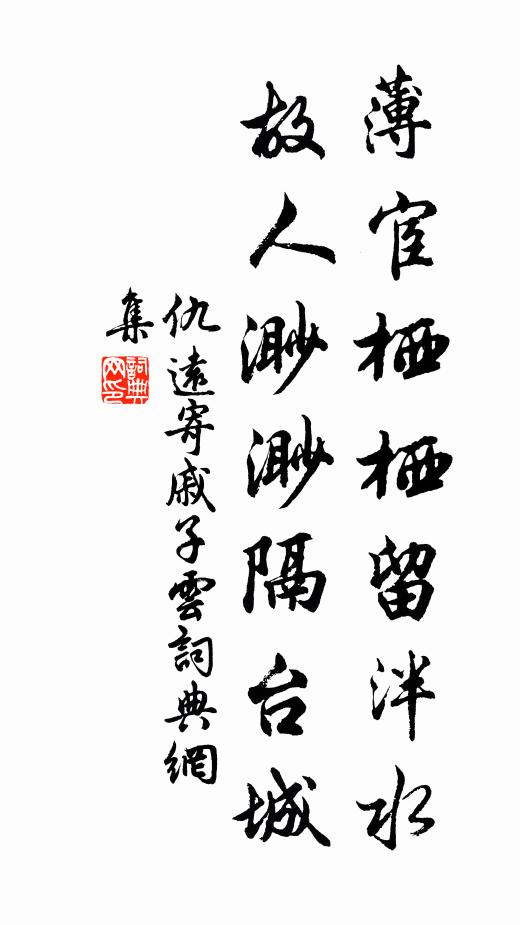 薄宦栖栖留泮水
故人渺渺隔台城
仇遠寄戚子雲詞典網
集
詞典
网印